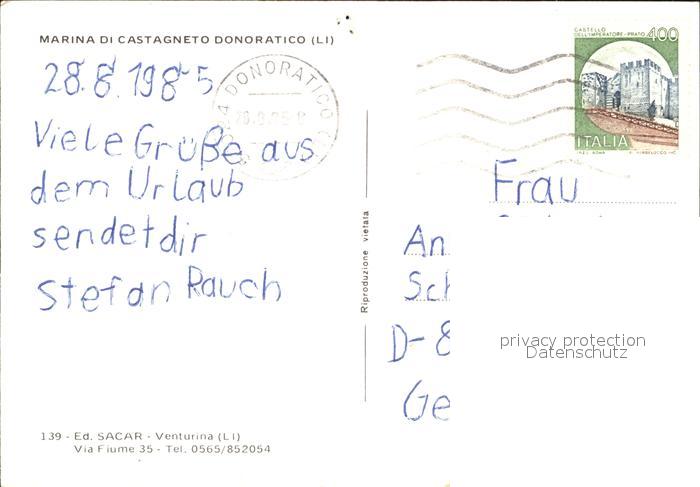 MARINA DI CASTAGNETO DONORATICO (LI)
28.8.1985
Viele Grüße aus
dem Urlaub
sendet dir
Stefan Rauch
139 - Ed. SACAR - Venturina (LI)
Via Fiume 35 - Tel. 0565/852054
Riproduzione vietata
DONORATICO
CASTELLO
DELL'IMPERATORE - PRATO 400
ITALIA
Frau
An
Sch
D-8
Ge
privacy protection
Datenschutz